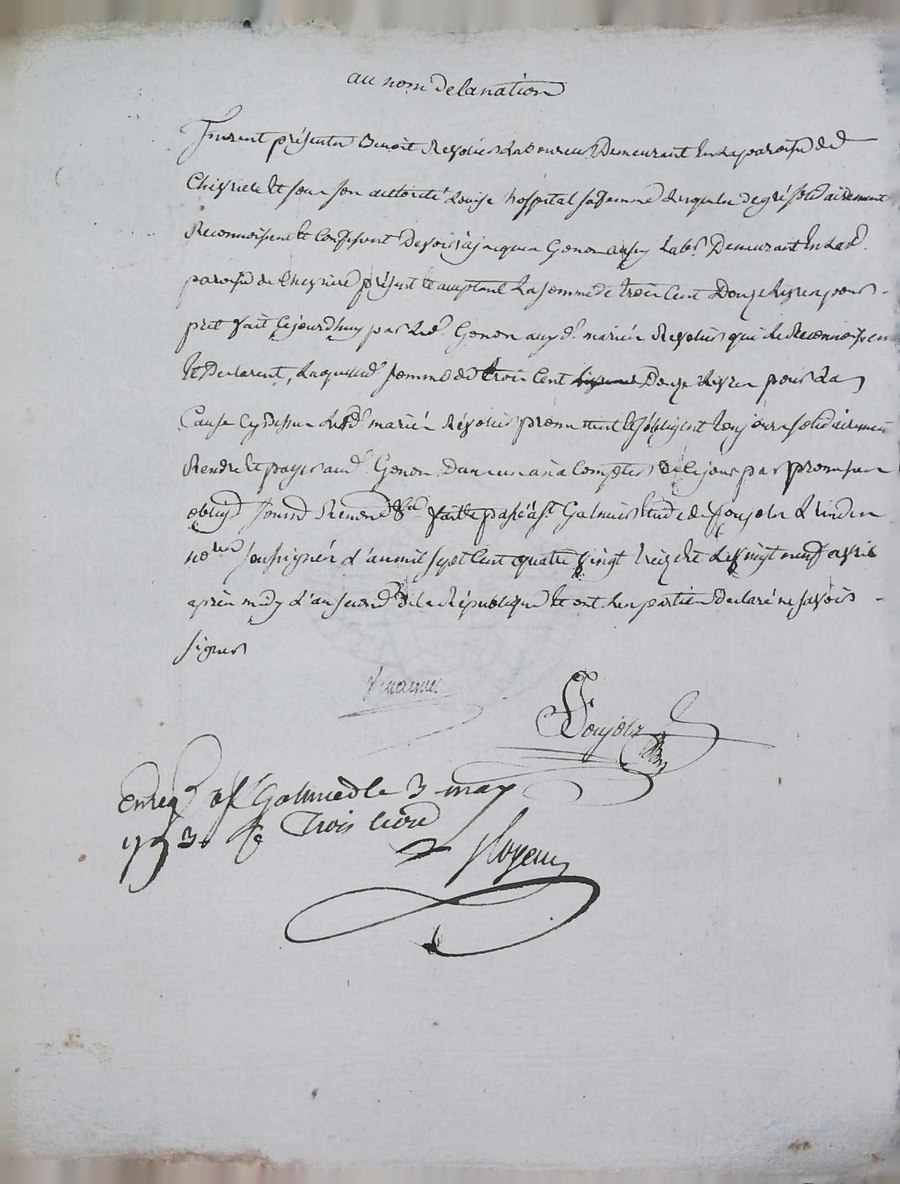 au nom de la nation
furent présents Benoit Revolier Laboureur Demeurant En La paroisse de
Chevriere Et sous son autorité Louise hospital sa femme de gré solidairement
Reconnoissent Et Confessent Devoir à Genon aussy Lab.r Demeurant En Lad.
paroisse de Chevriere présent Et acceptant La somme de trois Cent Douze Livres pour
pret fait Cejourd'huy par Led. Genon auxd. mariés Revolier qui Le Reconnoissent
Et Declarent, Laquelle somme de trois Cent Douze Livres pour La
Cause Cy Dessus Lesd. mariés Révolier promettent Et s'obligent Toujours solidairement
Rendre Et payer aud. Genon Dans un an à Compter de Ce jour par promesse
oblig.d fait Et passé à s.t Galmier Etude de Poujolz L'un des
no.res soussignés L'an mil sept Cent quatre vingt treize Et Le vingt neuf avril
après midy L'an second de la République Et ont Les parties Declaré ne savoir
signer
Poujolz
Enreg. à s.t Galmier le 3 may
1793. R. Trois livre